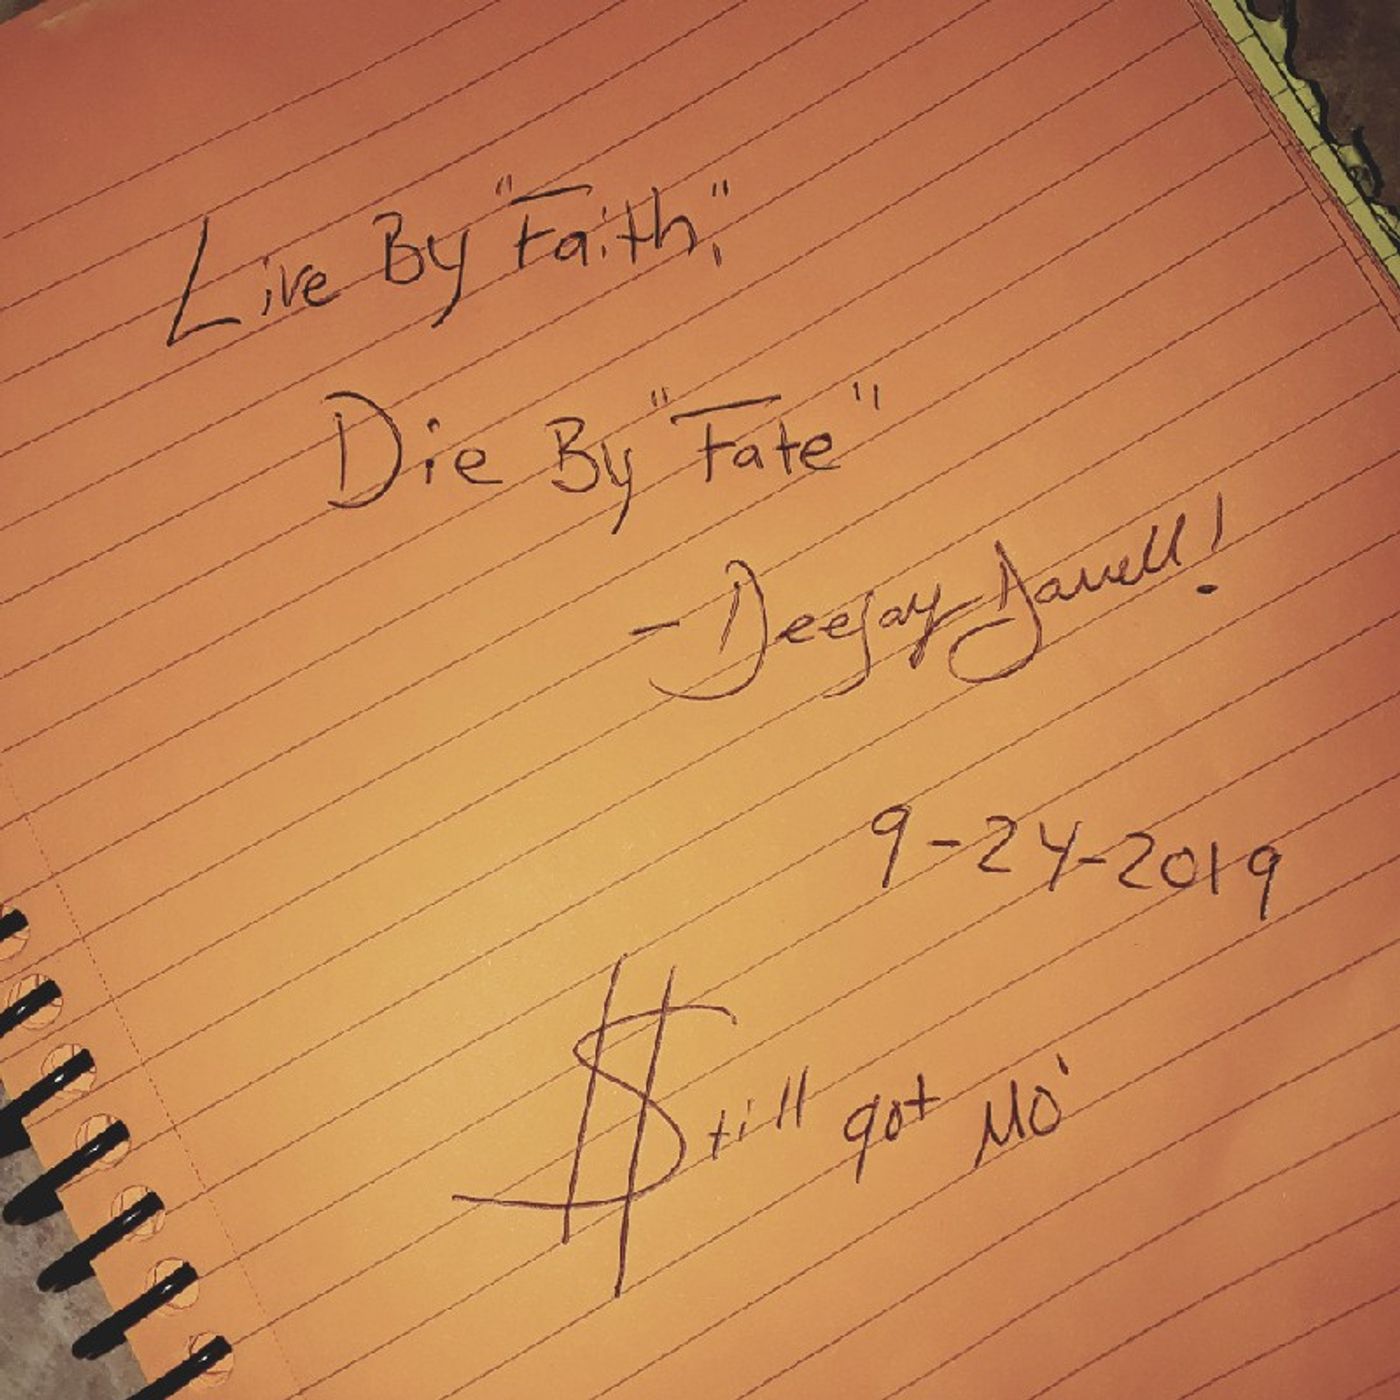 Live By "Faith,"
Die By "Fate"
- Deejay Darrell!
9-24-2019
$till got Mo'